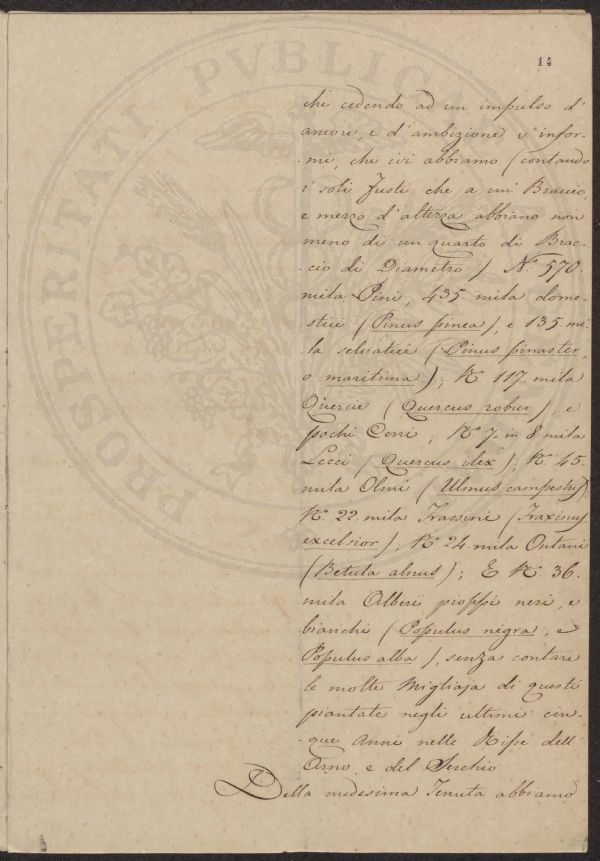 14
PROSPERITATI PVBLICAE
che cedendo ad un impulso d'
amore, e d'ambizione s'infor-
-mi, che ivi abbiamo (contando
i soli fusti che a un' Braccio,
e mezzo d'altezza abbiano non
meno di un quarto di Brac-
-cio di Diametro) N.° 570.
mila Pini, 435. mila dome-
stici (Pinus pinea), e 135. mi-
la selvatici (Pinus pinaster,
o maritima); N.° 117. mila
Quercie (Quercus robur), e
pochi Cerri; N.° 7. in 8 mila
Lecci (Quercus ilex); N.° 45.
mila Olmi (Ulmus campestris);
N.° 22. mila Frassini (Fraxinus
excelsior); N.° 24. mila Ontani
(Betula alnus); E N.° 36.
mila Alberi pioppi neri, e
bianchi (Populus nigra, e
Populus alba), senza contare
le molte Migliaja di questi
piantate negli ultimi cin-
-que Anni nelle Ripe dell'
Arno, e del Serchio
Della medesima Tenuta abbiamo